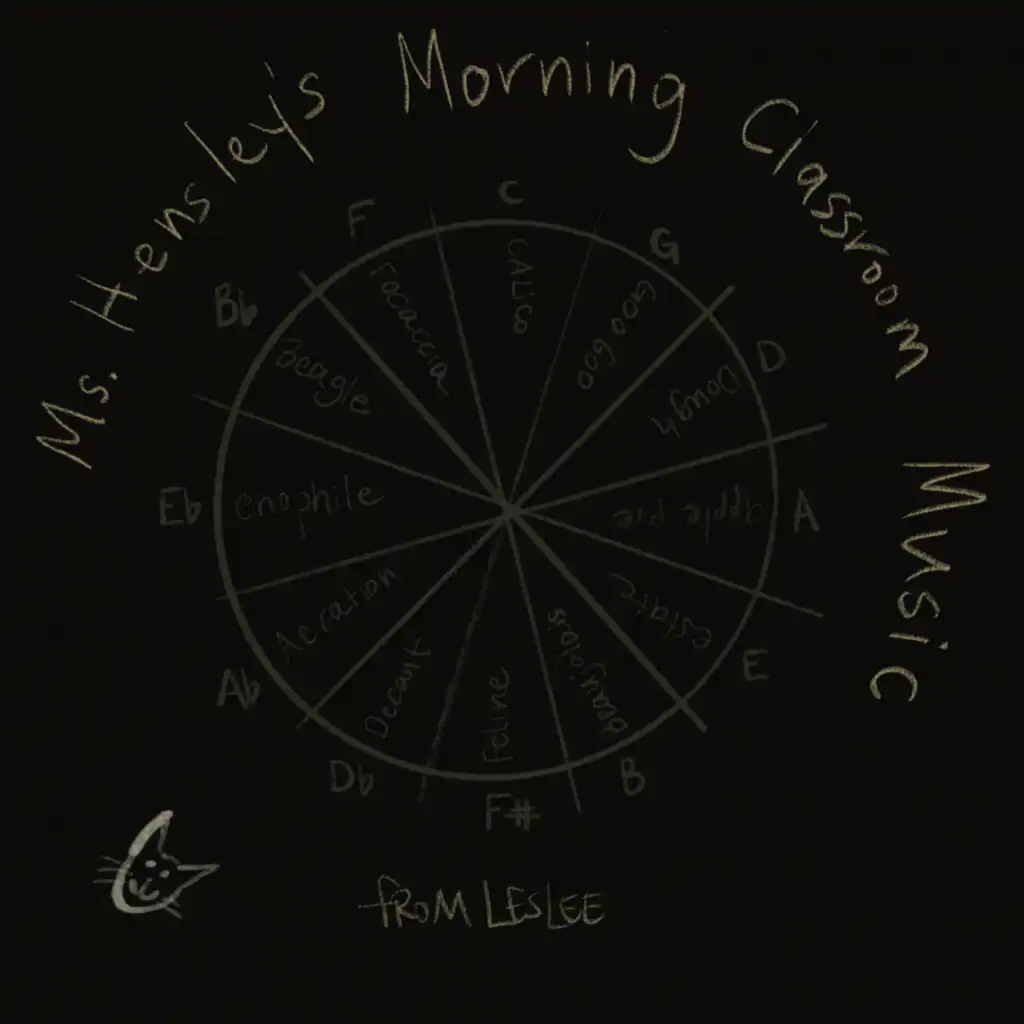 Ms. Hensley's Morning Classroom Music
C
CALICO
G
goo goo
D
Dough
A
apple pie
E
estate
B
F#
Feline
Db
Decant
Ab
Aeration
Eb
enophile
Bb
Beagle
F
Focaccia
FROM LESLEE